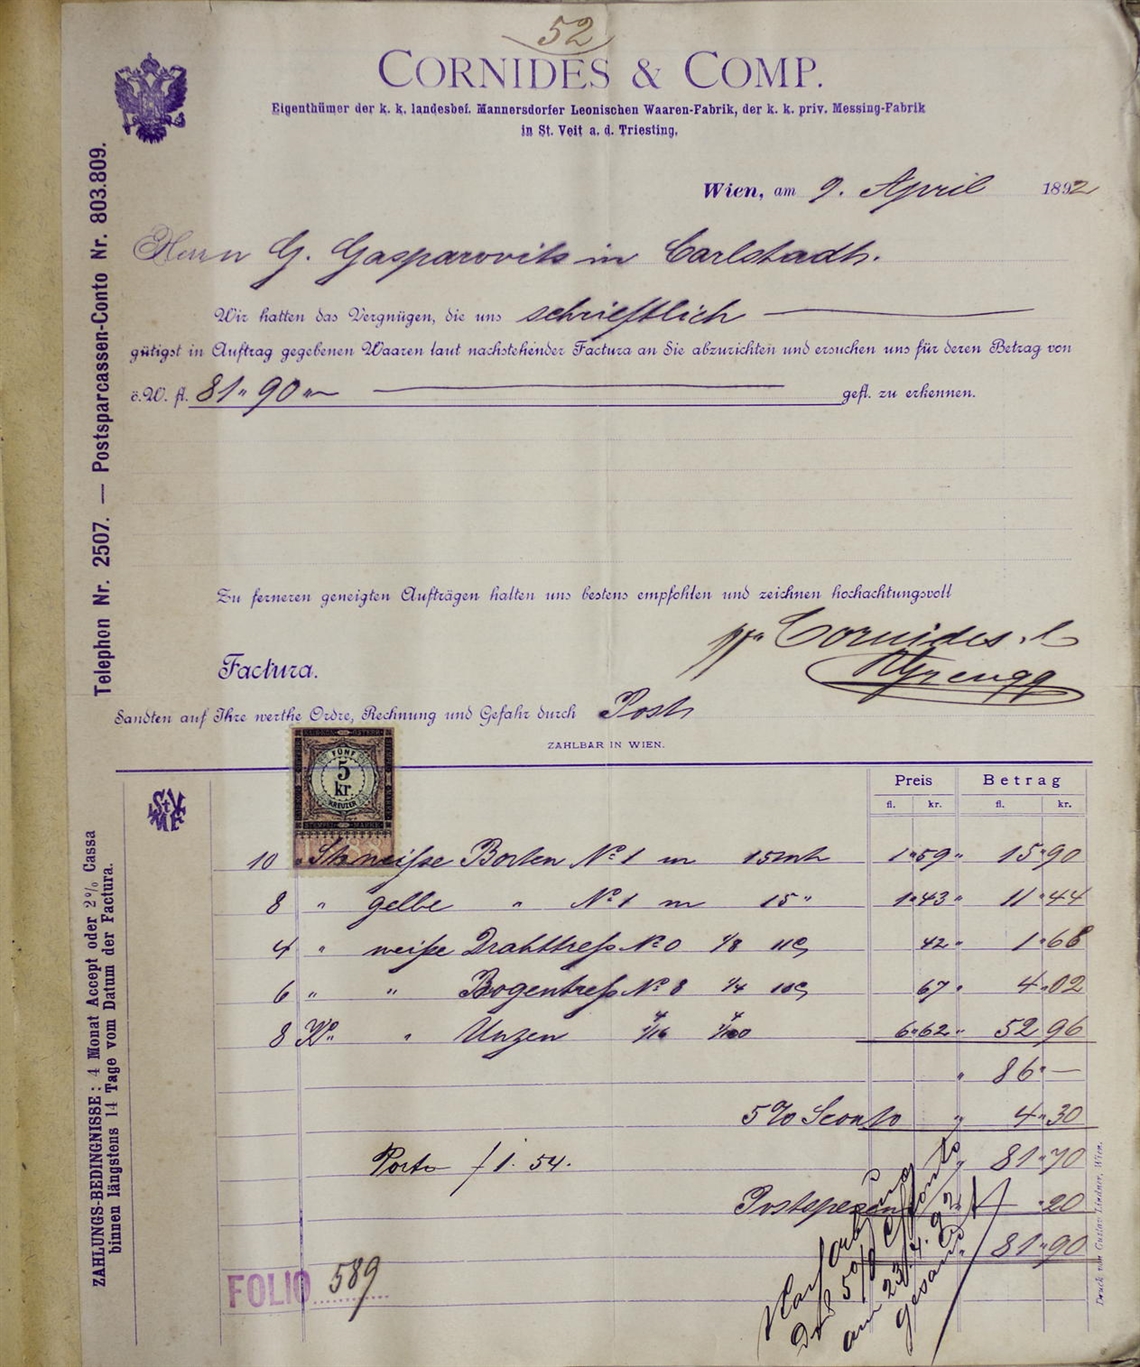 52
CORNIDES & COMP.
Eigenthümer der k. k. landesbef. Mannersdorfer Leonischen Waaren-Fabrik, der k. k. priv. Messing-Fabrik
in St. Veit a. d. Triesting.
Wien, am 9. April 1892
Herrn G. Gasparovits in Carlstadt.
Wir hatten das Vergnügen, die uns schriftlich
gütigst in Auftrag gegebenen Waaren laut nachstehender Factura an Sie abzurichten und ersuchen uns für deren Betrag von
ö.W. fl. 81„90„ gefl. zu erkennen.
Zu ferneren geneigten Aufträgen halten uns bestens empfohlen und zeichnen hochachtungsvoll
ppa Cornides &
Factura.
Sandten auf Ihre werthe Ordre, Rechnung und Gefahr durch Post
ZAHLBAR IN WIEN.
Telephon Nr. 2507. — Postsparcassen-Conto Nr. 803.809.
ZAHLUNGS-BEDINGNISSE: 4 Monat Accept oder 2% Cassa
binnen längstens 14 Tage vom Datum der Factura.
FÜNF
5
kr.
KREUZER
Preis Betrag
fl. kr. fl. kr.
10 „ Stk weiße Borten No 1 m 15 1„59„ 15„90
8 „ gelbe „ No 1 m 15 „ 1„43„ 11„44
4 „ weiße Drahttreß No 0 1/8 42„ 1„68
6 „ „ Bogentreß No 8 1/4 67„ 4„02
8 „ „ Unzen 6„62„ 52„96
„ 86„—
5% Sconto „ 4„30
Porto f 1. 54. „ 81„70
Postspesen „ 20
„ 81„90
5%
am 23/4. 92
gesandt
FOLIO 589
Druck von Gustav Lindner, Wien.